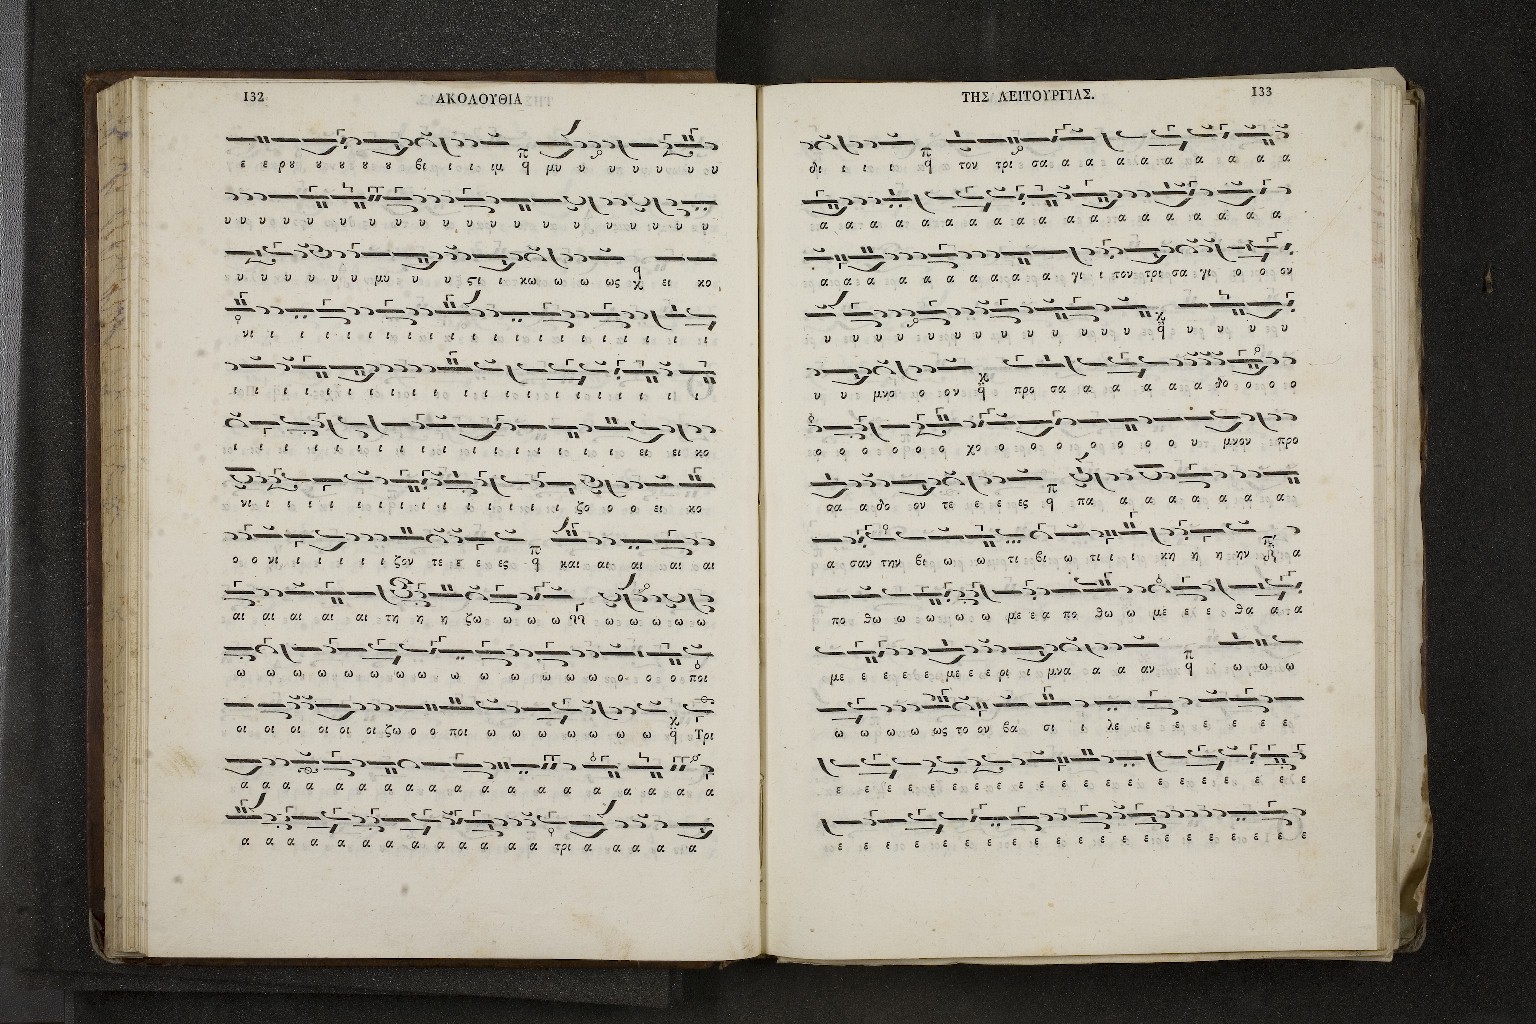 132
ΑΚΟΛΟΥΘΙΑ
ε ε ρȣ ȣ ȣ ȣ ȣ βι ι ι ιμ ϥ μυ υ υ υ υ υ υ υ
υ υ υ υ υ υ υ υ υ υ υ υ υ υ υ υ υ υ υ
υ υ υ υ υ υ μυ υ υ ςι ι κω ω ω ως ει κο
νι ι ι ι ι ι ι ι ι ι ι ι ι ι ι ι ι ι
ι ι ι ι ι ι ι ι ι ι ι ι ι ι ι ι ι ι ι ι
ι ι ι ι ι ι ι ι ι ι ι ι ι ι ι ι ει ει κο
νι ι ι ι ι ι ι ι ι ι ι ι ι ι ζο ο ο ει κο
ο ο νι ι ι ι ι ι ζον τε ε ε ες ϥ και αι αι αι αι
αι αι αι αι αι τη η η η ζω ω ω ω ω ω ω ω ω
ω ω ω ω ω ω ω ω ω ω ω ω ω ω ο ο ο ποι
οι οι οι οι οι οι ζω ο ο ποι ω ω ω ω ω ω ω ω ϥ Τρι
α α α α α α α α α α α α α α α α α α α
α α α α α α α α α α α α α τρι α α α α α
ΤΗΣ ΛΕΙΤΟΥΡΓΙΑΣ.
133
δι ι ι ι ϥ τον τρι σα α α α α α α α α α
α α α α α α α α α α α α α α α α α α α
α α α α α α α α α α γι ι τον τρι σα γι ο ο ον
υ υ υ υ υ υ υ υ υ υ υ υ υ υ ϥ υ υ υ υ
υ υ μνο ο ον ϥ προ σα α α α α α δο ο ο ο
ο ο ο ο ο ο ο χο ο ο ο ο ο ο ο ο υ μνον προ
σα α δο ον τε ε ε ες ϥ πα α α α α α α α
α σαν την βι ω ω τι βι ω τι ι ι κη η η ην α
πο θω ω ω ω ω ω με ε α πο θω ω με ε ε θα α α
με ε ε ε ε με ε ε ρι ι μνα α α αν ϥ ω ω ω
ω ω ω ω ως το ον βα σι ι λε ε ε ε ε ε ε
ε ε ε ε ε ε ε ε ε ε ε ε ε ε ε ε ε ε ε
ε ε ε ε ε ε ε ε ε ε ε ε ε ε ε ε ε ε ε